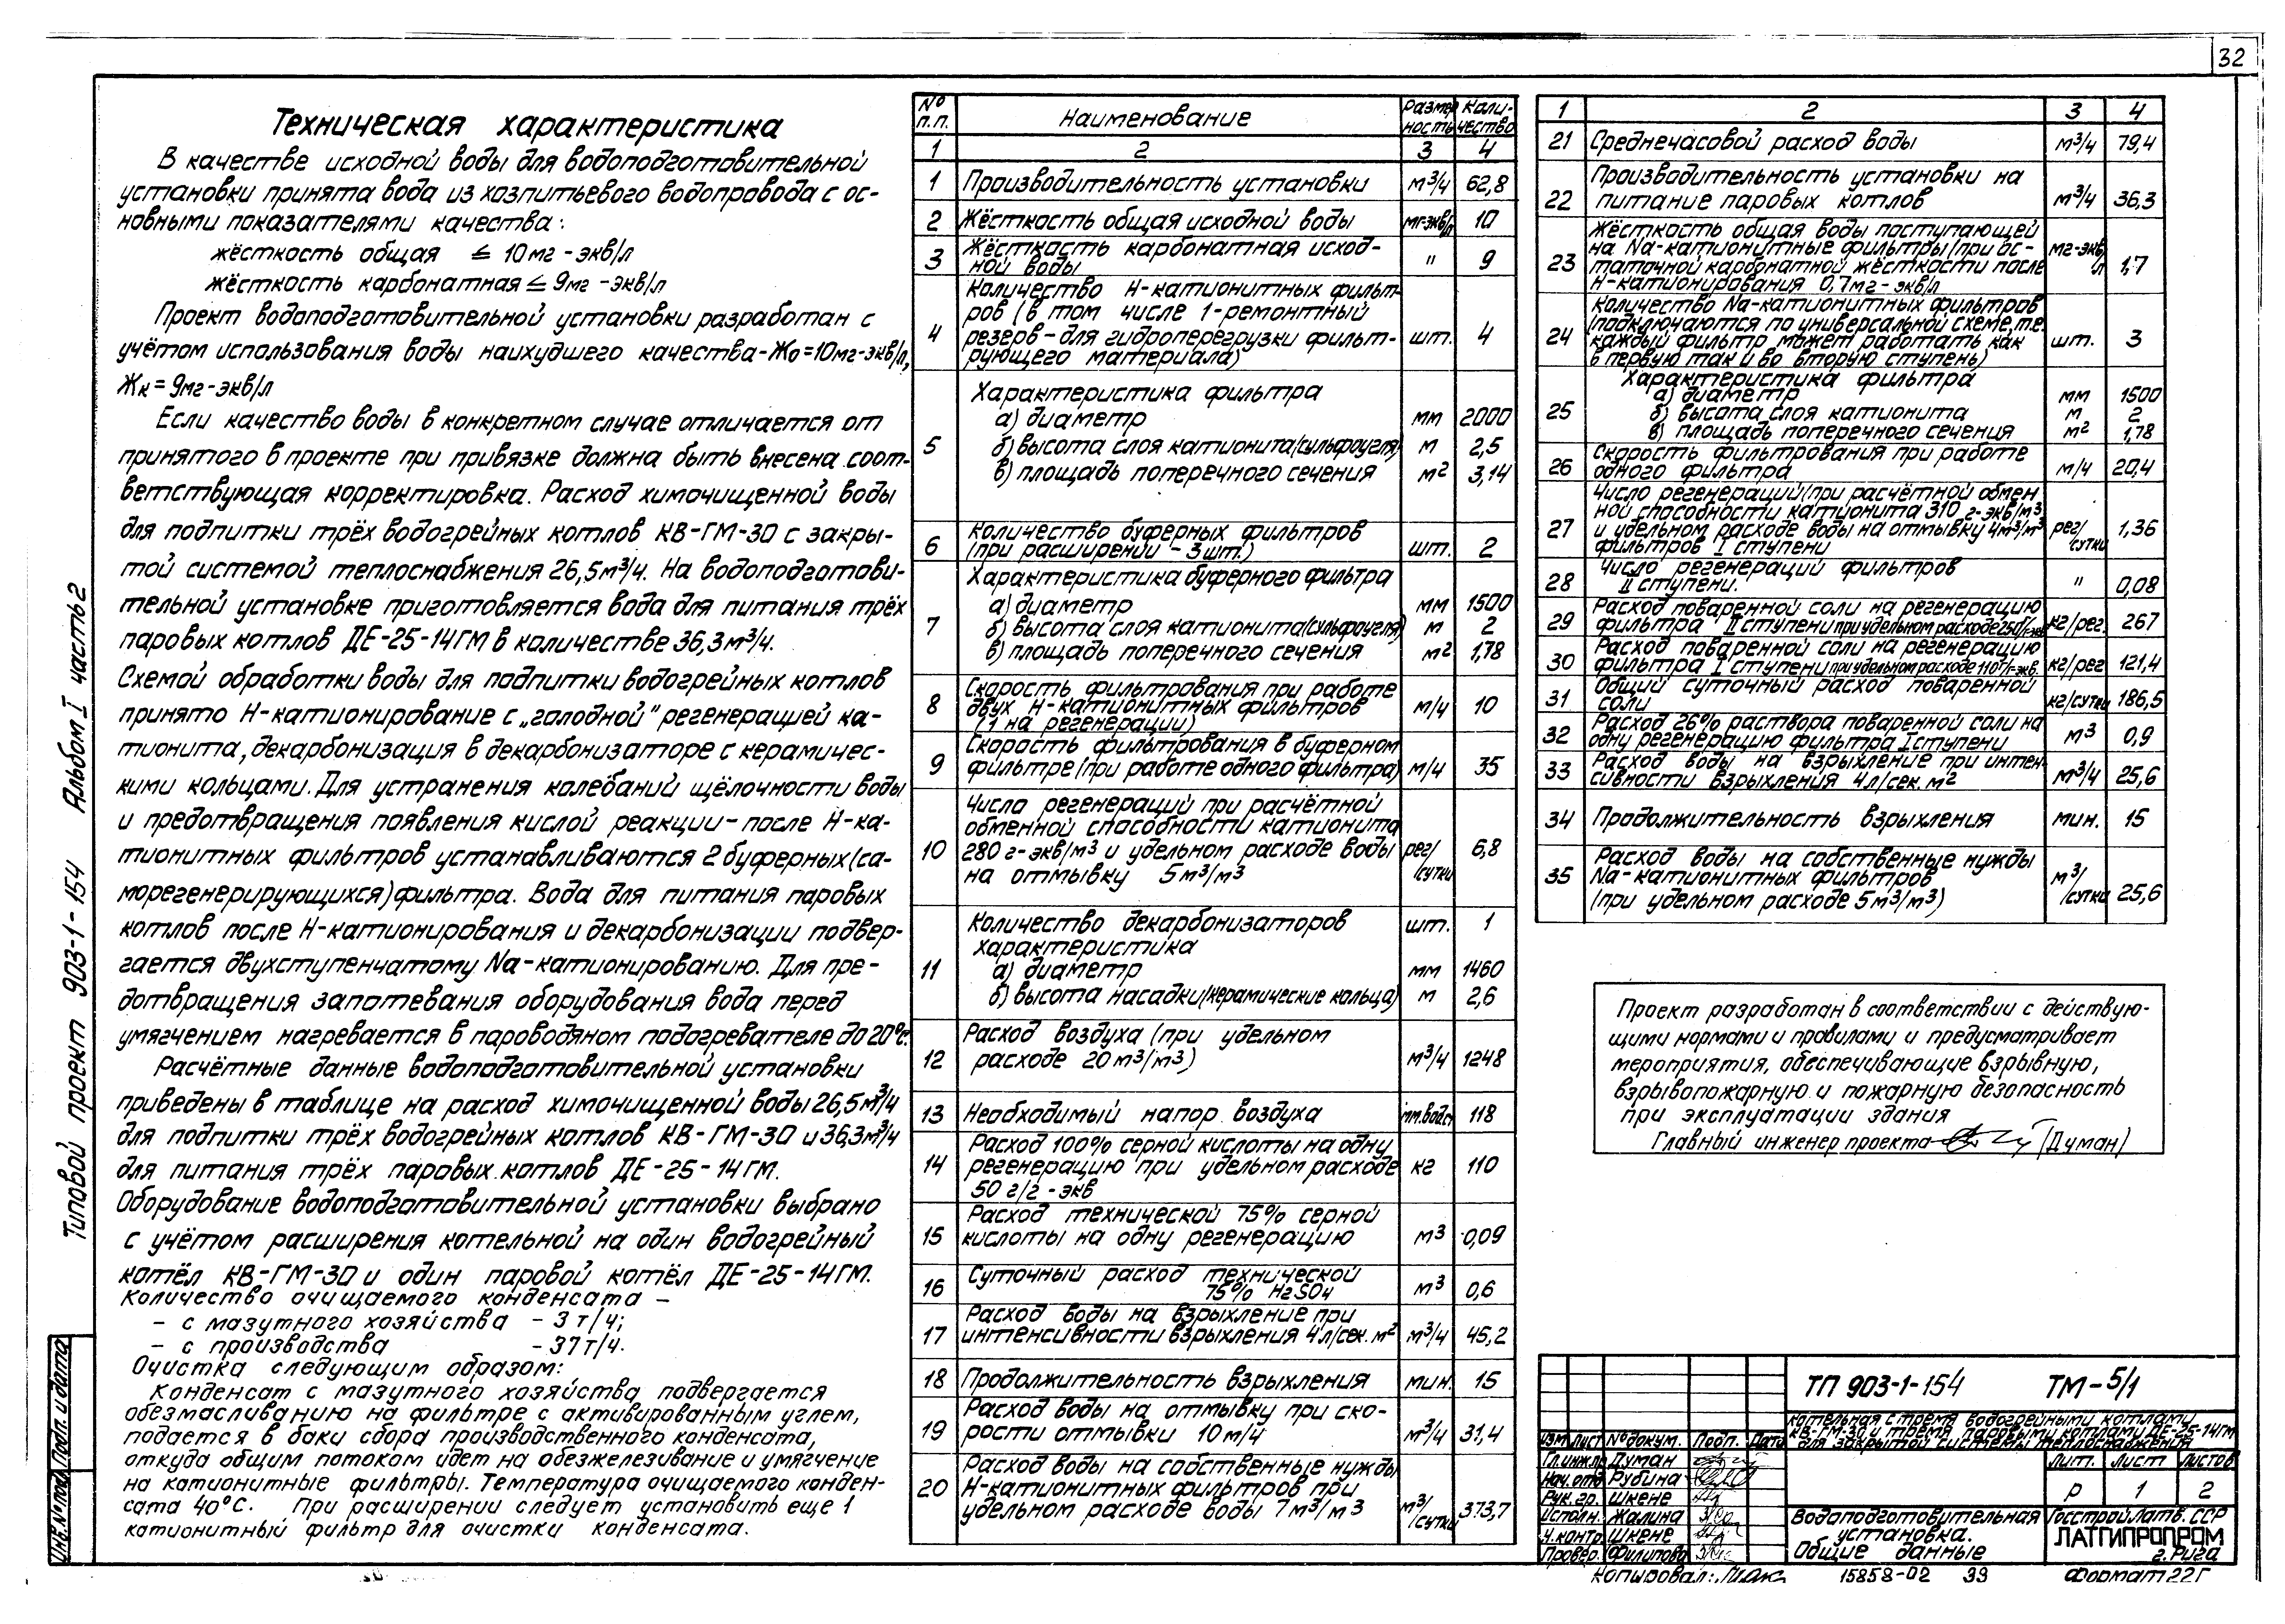 32
Техническая характеристика
В качестве исходной воды для водоподготовительной
установки принята вода из хозпитьевого водопровода с ос-
новными показателями качества:
жёсткость общая ≤ 10 мг-экв/л
жёсткость карбонатная ≤ 9 мг-экв/л
Проект водоподготовительной установки разработан с
учётом использования воды наихудшего качества - Жо = 10 мг-экв/л,
Жк = 9 мг-экв/л
Если качество воды в конкретном случае отличается от
принятого в проекте при привязке должна быть внесена соот-
ветствующая корректировка. Расход химочищенной воды
для подпитки трёх водогрейных котлов КВ-ГМ-30 с закры-
той системой теплоснабжения 26,5 м³/ч. На водоподготови-
тельной установке приготовляется вода для питания трёх
паровых котлов ДЕ-25-14ГМ в количестве 36,3 м³/ч.
Схемой обработки воды для подпитки водогрейных котлов
принято Н-катионирование с „голодной" регенерацией ка-
тионита, декарбонизация в декарбонизаторе с керамичес-
кими кольцами. Для устранения колебаний щёлочности воды
и предотвращения появления кислой реакции - после Н-ка-
тионитных фильтров устанавливаются 2 буферных (са-
морегенерирующихся) фильтра. Вода для питания паровых
котлов после Н-катионирования и декарбонизации подвер-
гается двухступенчатому Na-катионированию. Для пре-
дотвращения запотевания оборудования вода перед
умягчением нагревается в пароводяном подогревателе до 20°С.
Расчётные данные водоподготовительной установки
приведены в таблице на расход химочищенной воды 26,5 м³/ч
для подпитки трёх водогрейных котлов КВ-ГМ-30 и 36,3 м³/ч
для питания трёх паровых котлов ДЕ-25-14ГМ.
Оборудование водоподготовительной установки выбрано
с учётом расширения котельной на один водогрейный
котёл КВ-ГМ-30 и один паровой котёл ДЕ-25-14ГМ.
Количество очищаемого конденсата -
- с мазутного хозяйства - 3 т/ч;
- с производства - 37 т/ч.
Очистка следующим образом:
Конденсат с мазутного хозяйства подвергается
обезмасливанию на фильтре с активированным углем,
подается в баки сбора производственного конденсата,
откуда общим потоком идет на обезжелезивание и умягчение
на катионитные фильтры. Температура очищаемого конден-
сата 40°С. При расширении следует установить еще 1
катионитный фильтр для очистки конденсата.
№ п.п. Наименование Размерность Количество
1 2 3 4
1 Производительность установки м³/ч 62,8
2 Жёсткость общая исходной воды мг-экв/л 10
3 Жёсткость карбонатная исход-
ной воды " 9
Количество Н-катионитных фильт-
ров (в том числе 1-ремонтный
4 резерв - для гидроперегрузки фильт- шт. 4
рующего материала)
Характеристика фильтра
а) диаметр мм 2000
5 б) высота слоя катионита (сульфоугля) м 2,5
в) площадь поперечного сечения м² 3,14
Количество буферных фильтров
6 (при расширении - 3 шт.) шт. 2
Характеристика буферного фильтра
а) диаметр мм 1500
7 б) высота слоя катионита (сульфоугля) м 2
в) площадь поперечного сечения м² 1,78
Скорость фильтрования при работе
8 двух Н-катионитных фильтров м/ч 10
(1 на регенерации)
Скорость фильтрования в буферном
9 фильтре (при работе одного фильтра) м/ч 35
Число регенераций при расчётной
обменной способности катионита
10 280 г-экв/м³ и удельном расходе воды рег/сутки 6,8
на отмывку 5 м³/м³
Количество декарбонизаторов шт. 1
характеристика
11 а) диаметр мм 1460
б) высота насадки (керамические кольца) м 2,6
Расход воздуха (при удельном
12 расходе 20 м³/м³) м³/ч 1248
13 Необходимый напор воздуха мм.вод.ст 118
Расход 100% серной кислоты на одну
14 регенерацию при удельном расходе кг 110
50 г/г-экв
Расход технической 75% серной
15 кислоты на одну регенерацию м³ 0,09
Суточный расход технической
16 75% H₂SO₄ м³ 0,6
Расход воды на взрыхление при
17 интенсивности взрыхления 4 л/сек.м² м³/ч 45,2
18 Продолжительность взрыхления мин. 15
Расход воды на отмывку при ско-
19 рости отмывки 10 м/ч м³/ч 31,4
Расход воды на собственные нужды
20 Н-катионитных фильтров при
удельном расходе воды 7 м³/м³ м³/сутки 373,7
1 2 3 4
21 Среднечасовой расход воды м³/ч 79,4
Производительность установки на
22 питание паровых котлов м³/ч 36,3
Жёсткость общая воды поступающей
на Na-катионитные фильтры (при ос-
23 таточной карбонатной жёсткости после мг-экв/л 1,7
Н-катионирования 0,7 мг-экв/л
Количество Na-катионитных фильтров
(подключаются по универсальной схеме, т.е.
24 каждый фильтр может работать как шт. 3
в первую так и во вторую ступень)
Характеристика фильтра
а) диаметр мм 1500
25 б) высота слоя катионита м 2
в) площадь поперечного сечения м² 1,78
Скорость фильтрования при работе
26 одного фильтра м/ч 20,4
Число регенераций (при расчётной обмен
ной способности катионита 310 г-экв/м³
27 и удельном расходе воды на отмывку 4 м³/м³ рег/сутки 1,36
фильтров I ступени
Число регенераций фильтров
28 II ступени. " 0,08
Расход поваренной соли на регенерацию
29 фильтра II ступени при удельном расходе 250 г/г-экв кг/рег. 267
Расход поваренной соли на регенерацию
30 фильтра I ступени при удельном расходе 110 г/г-экв. кг/рег 121,4
Общий суточный расход поваренной
31 соли кг/сутки 186,5
Расход 26% раствора поваренной соли на
32 одну регенерацию фильтра I ступени м³ 0,9
Расход воды на взрыхление при интен-
33 сивности взрыхления 4 л/сек.м² м³/ч 25,6
34 Продолжительность взрыхления мин. 15
Расход воды на собственные нужды
35 Na-катионитных фильтров м³/сутки 25,6
(при удельном расходе 5 м³/м³)
Проект разработан в соответствии с действую-
щими нормами и правилами и предусматривает
мероприятия, обеспечивающие взрывную,
взрывопожарную и пожарную безопасность
при эксплуатации здания
Главный инженер проекта (Думан)
ТП 903-1-154 ТМ-5/1
котельная с тремя водогрейными котлами
КВ-ГМ-30 и тремя паровыми котлами ДЕ-25-14ГМ
для закрытой системы теплоснабжения
Изм Лист № докум. Подп. Дата
Гл.инж.пр Думан
Нач.отд Рубина
Рук.гр. Шкене
Исполн. Жалина
Н.контр. Шкене
Провер. Филипова
Лит. Лист Листов
Р 1 2
Водоподготовительная
установка.
Общие данные
Госстрой Латв. ССР
ЛАТГИПРОПРОМ
г. Рига
Копировал: 15858-02 33 Формат 22Г
Типовой проект 903-1-154 Альбом I часть 2
Подп. и дата
Инв.№ подл.